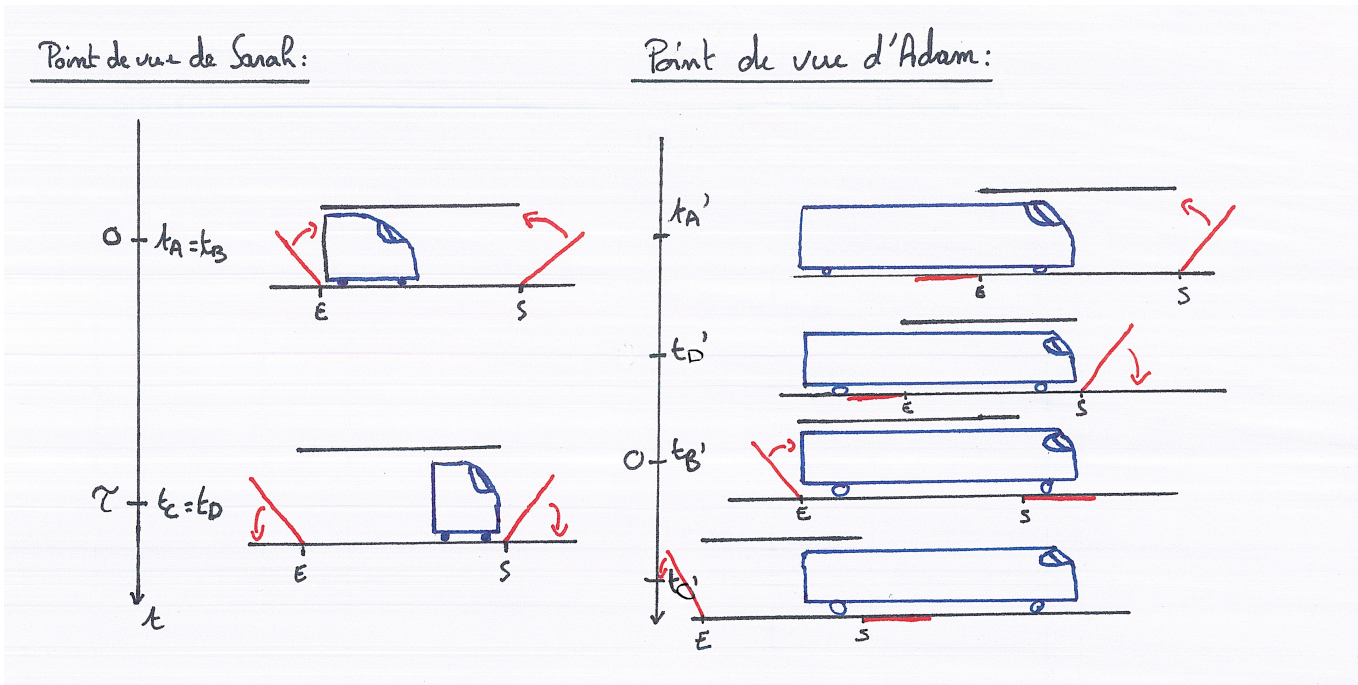 Point de vue de Sarah:
0 tA = tB
E S
τ tC = tD
E S
t
Point de vue d'Adam:
tA'
E S
tD'
E S
0 tB'
E S
tC'
E S